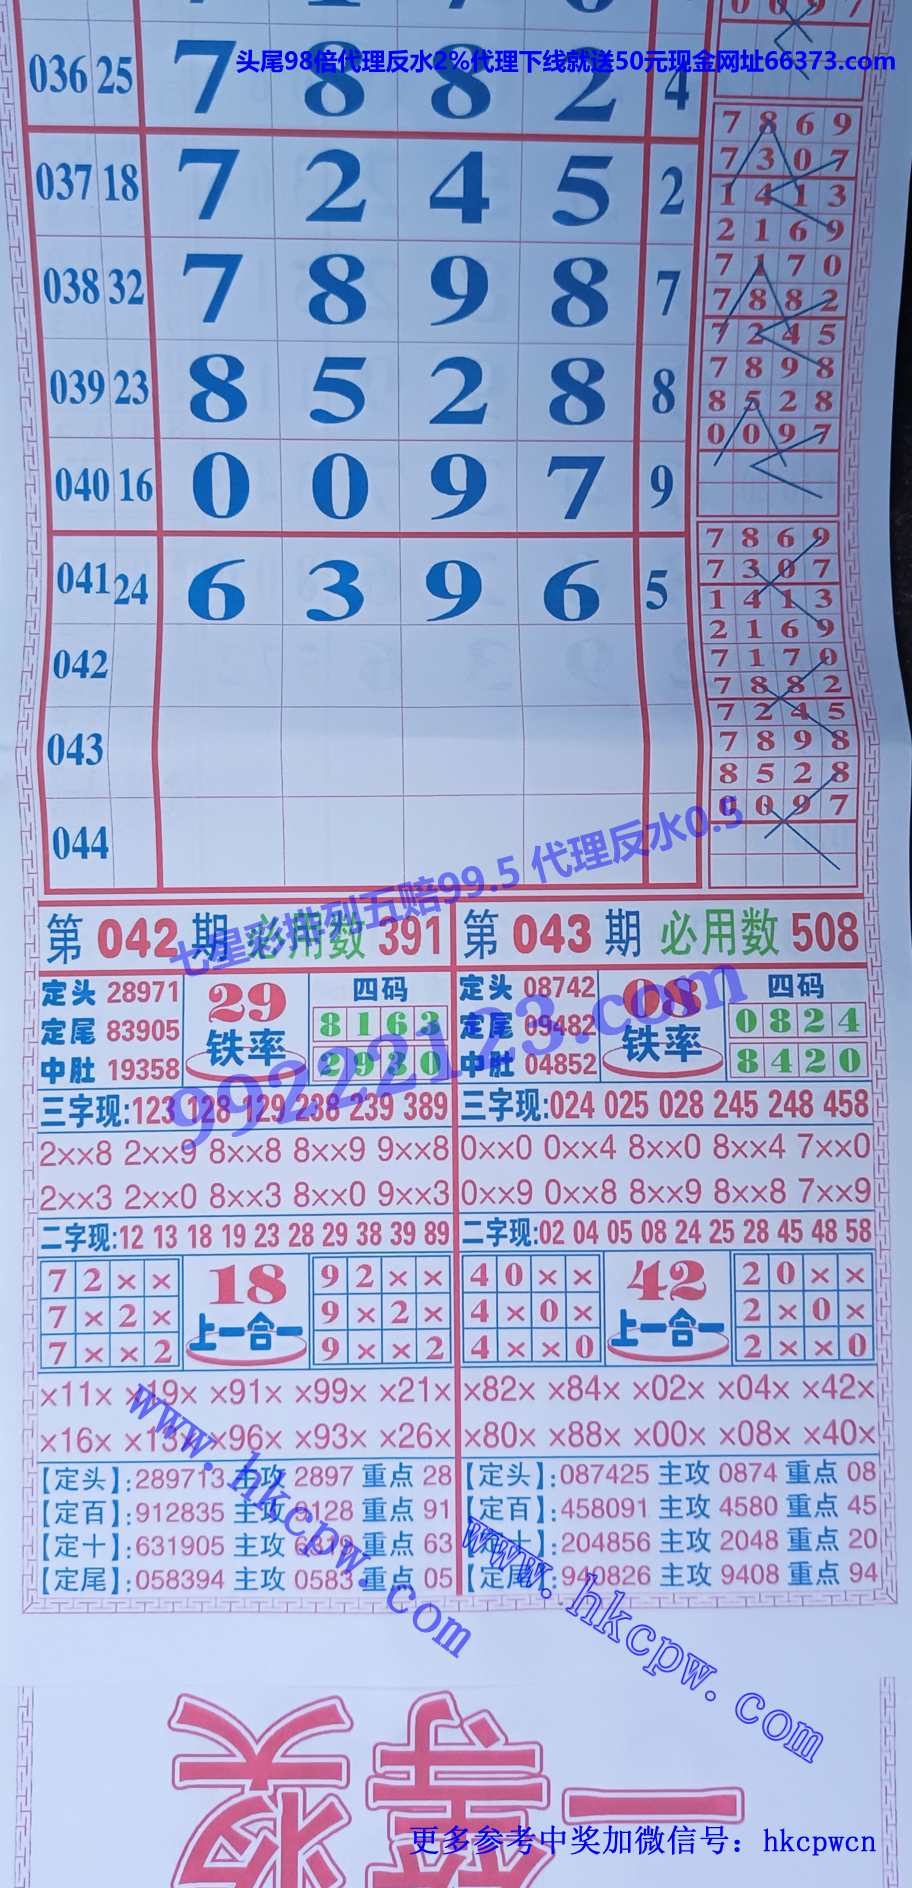 头尾98倍代理反水2%代理下线就送50元现金网址66373.com
0 0 9 7
036 25 7 8 8 2 4
037 18 7 2 4 5 2
038 32 7 8 9 8 7
039 23 8 5 2 8 8
040 16 0 0 9 7 9
041 24 6 3 9 6 5
042
043
044
7 8 6 9
7 3 0 7
1 4 1 3
2 1 6 9
7 1 7 0
7 8 8 2
7 2 4 5
7 8 9 8
8 5 2 8
0 0 9 7
7 8 6 9
7 3 0 7
1 4 1 3
2 1 6 9
7 1 7 0
7 8 8 2
7 2 4 5
7 8 9 8
8 5 2 8
0 0 9 7
七星彩排列五赔99.5 代理反水0.5
99222123.com
第042期 必用数 391
定头 28971
定尾 83905
中肚 19358
29
铁率
四码
8 1 6 3
2 9 3 0
三字现:123 128 129 238 239 389
2××8 2××9 8××8 8××9 9××8
2××3 2××0 8××3 8××0 9××3
二字现:12 13 18 19 23 28 29 38 39 89
7 2 × ×
7 × 2 ×
7 × × 2
18
上一合一
9 2 × ×
9 × 2 ×
9 × × 2
×11× ×19× ×91× ×99× ×21×
×16× ×13× ×96× ×93× ×26×
【定头】:289713 主攻 2897 重点 28
【定百】:912835 主攻 9128 重点 91
【定十】:631905 主攻 6319 重点 63
【定尾】:058394 主攻 0583 重点 05
第043期 必用数 508
定头 08742
定尾 09482
中肚 04852
08
铁率
四码
0 8 2 4
8 4 2 0
三字现:024 025 028 245 248 458
0××0 0××4 8××0 8××4 7××0
0××9 0××8 8××9 8××8 7××9
二字现:02 04 05 08 24 25 28 45 48 58
4 0 × ×
4 × 0 ×
4 × × 0
42
上一合一
2 0 × ×
2 × 0 ×
2 × × 0
×82× ×84× ×02× ×04× ×42×
×80× ×88× ×00× ×08× ×40×
【定头】:087425 主攻 0874 重点 08
【定百】:458091 主攻 4580 重点 45
【定十】:204856 主攻 2048 重点 20
【定尾】:940826 主攻 9408 重点 94
www.hkcpw.com
www.hkcpw.com
更多参考中奖加微信号：hkcpwcn